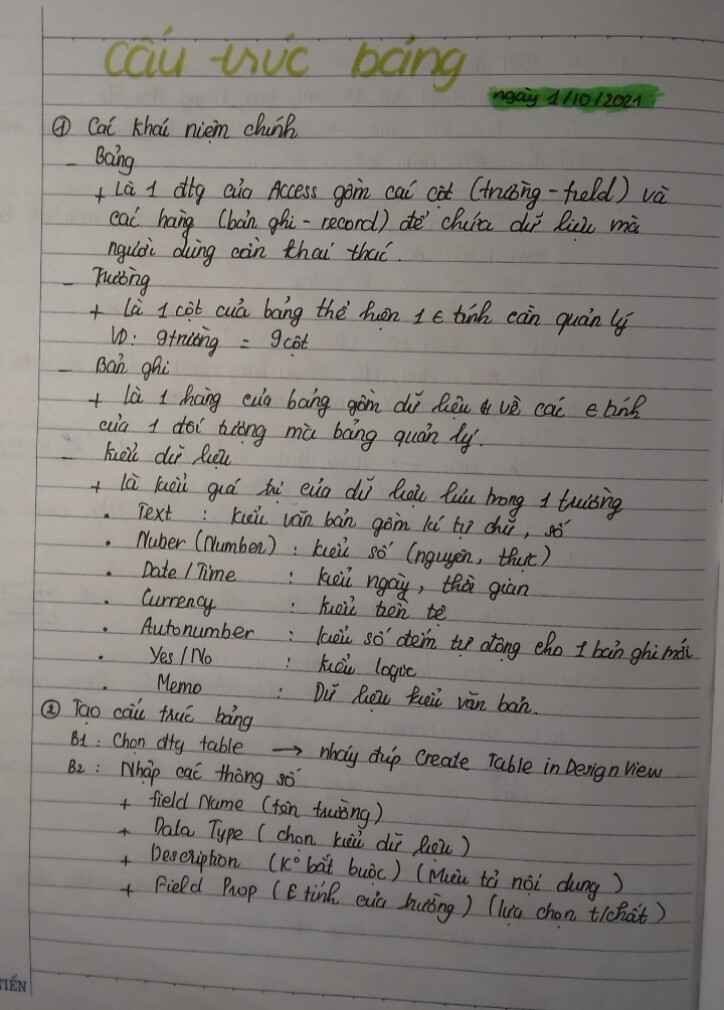 Cấu trúc bảng
ngày 1/10/2021
① Các khái niệm chính
- Bảng
+ Là 1 đtg của Access gồm các cột (trường - field) và
các hàng (bản ghi - record) để chứa dữ liệu mà
người dùng cần khai thác.
- Trường
+ Là 1 cột của bảng thể hiện 1 € tính cần quản lý
VD: 9 trường = 9 cột
- Bản ghi
+ là 1 hàng của bảng gồm dữ liệu về các € tính
của 1 đối tượng mà bảng quản lý.
- Kiểu dữ liệu
+ là kiểu giá trị của dữ liệu lưu trong 1 trường
. Text : kiểu văn bản gồm kí tự chữ, số
. Nuber (Number) : kiểu số (nguyên, thực)
. Date / Time : kiểu ngày, thời gian
. Currency : kiểu tiền tệ
. Autonumber : kiểu số đếm tự động cho 1 bản ghi mới
. Yes / No : kiểu logic
. Memo : Dữ liệu kiểu văn bản.
② Tạo cấu trúc bảng
B1 : Chọn đtg table → nháy đúp Create Table in Design View
B2 : Nhập các thông số
+ field Name (tên trường)
+ Data Type ( chọn kiểu dữ liệu )
+ Description (K° bắt buộc) (Miêu tả nội dung )
+ Field Prop ( € tính của trường ) (lựa chọn t/chất )
TIẾN